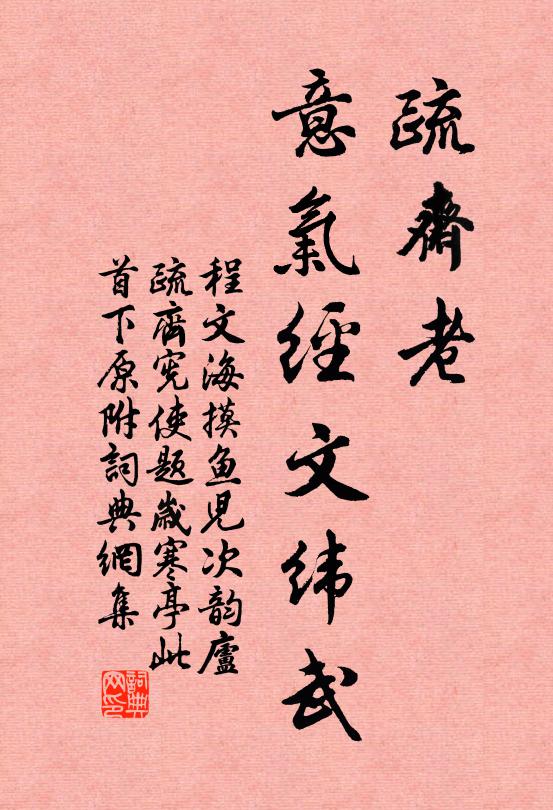 疏齋老
意氣經文緯武
程文海摸魚兒次韵廬
疏齊宪使題歲寒亭此
首下原附詞典網集
詞典网印